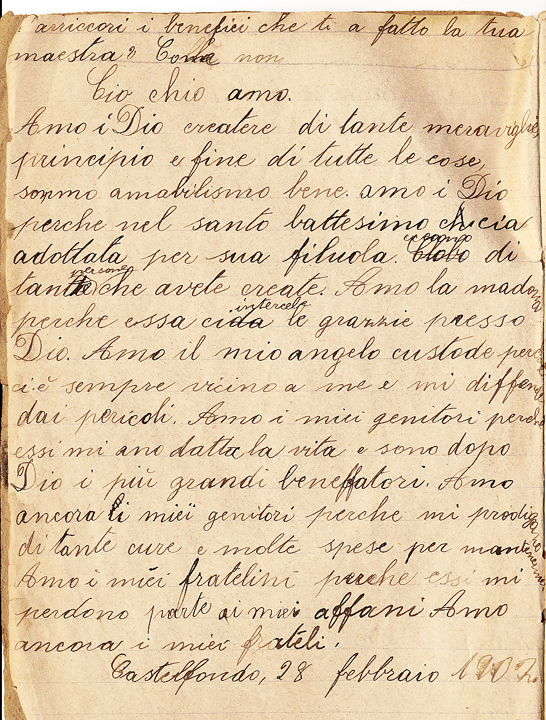 T'arriccori i benefici che ti a fatto la tua
maestra? Come non
Cio chio amo.
Amo i Dio createre di tante meraviglie,
principio e fine di tutte le cose,
sommo amabilismo bene. amo i Dio
perche nel santo battesimo chicia
adottata per sua filuola. di
persone
tante che avete create. Amo la madona
intercede
perche essa ci da le grazzie presso
Dio. Amo il mio angelo custode perche
ci è sempre vicino a me e mi diffende
dai pericoli. Amo i miei genitori perche
essi mi ano datta la vita e sono dopo
Dio i più grandi beneffatori. Amo
ancora li miei genitori perche mi prodigano
di tante cure e molte spese per mantenermi
Amo i miei fratelini perche essi mi
perdono parte ai miei affani Amo
ancora i miei frateli.
Castelfondo, 28 febbraio 1902.